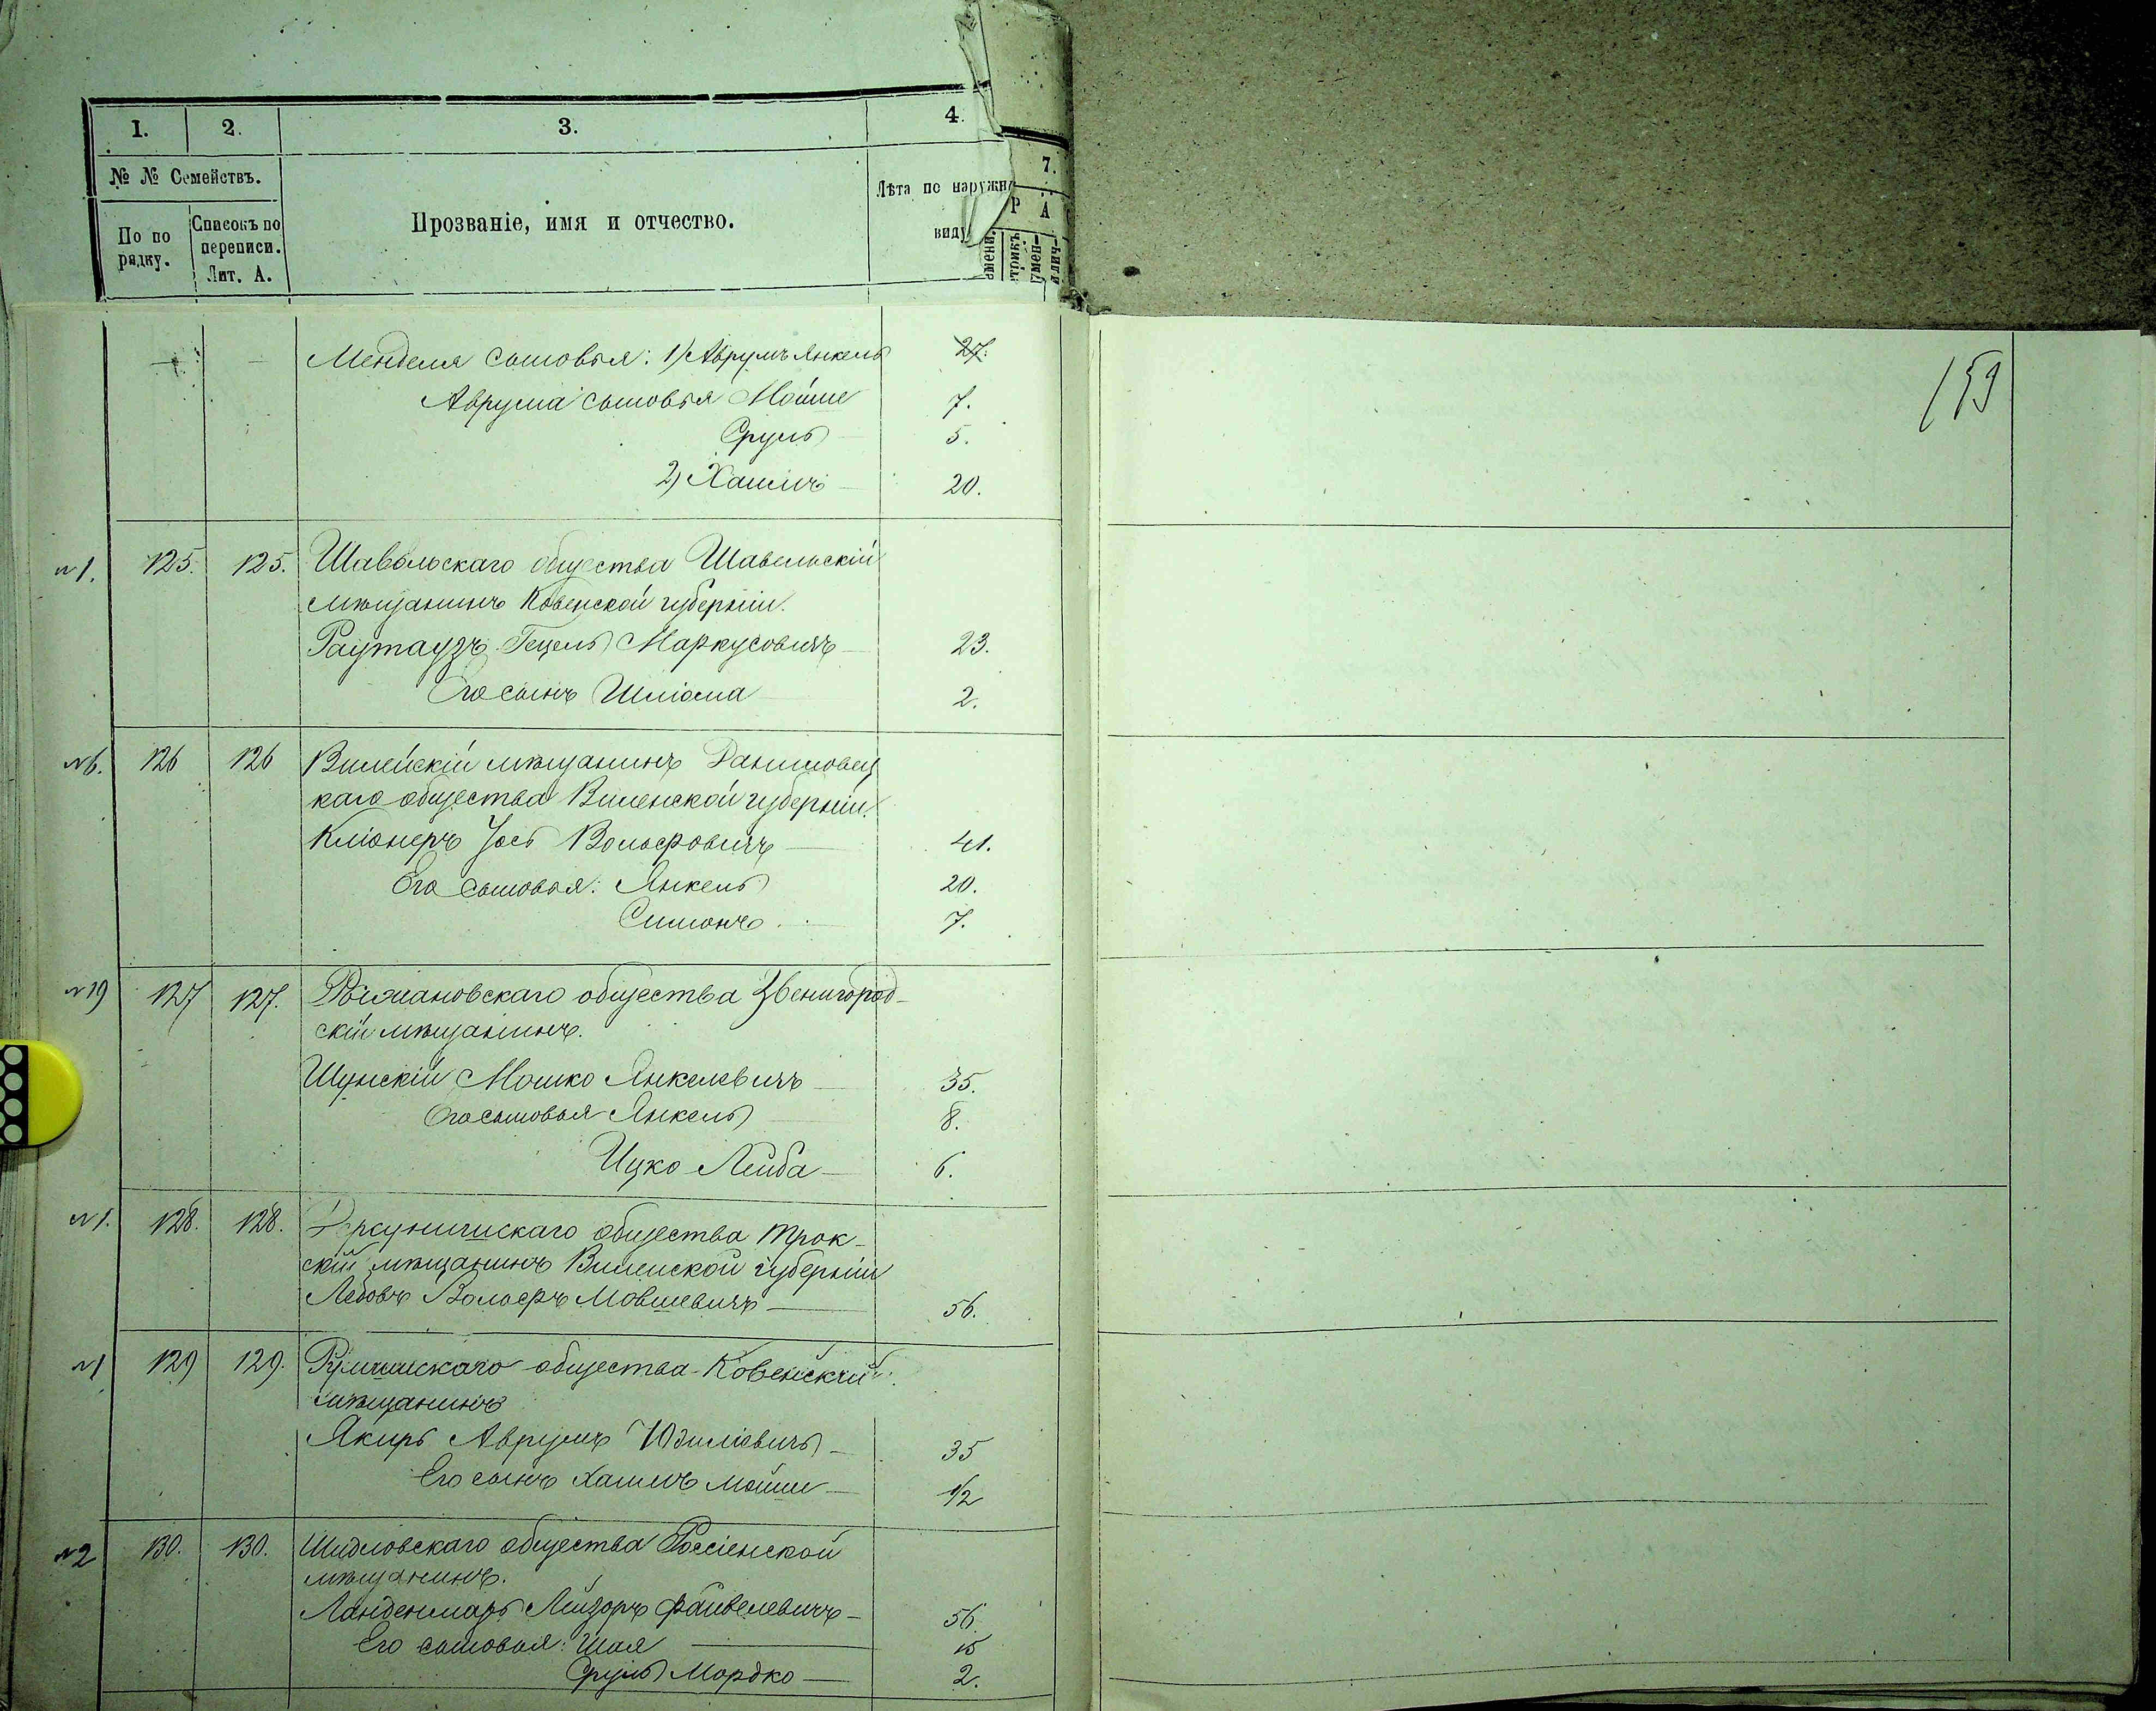 1. 2. 3. 4. 7.
№ № Семействъ.
По по рядку. Списокъ по переписи. Лит. А. Прозваніе, имя и отчество. Лѣта по наружн виду Р А
Менделя сыновья: 1) Аврумъ Янкель 27.
Аврума сыновья Мойше 7.
Сруль 5.
2) Хаимъ 20.
159
№1. 125. 125. Шавельскаго общества Шавельскій
мѣщанинъ Ковенской губерніи.
Раутаузъ Гецель Маркусовичъ 23.
Его сынъ Шліома 2.
№6. 126 126 Вилейскій мѣщанинъ Даниловец
каго общества Виленской губерніи.
Кліонеръ Іось Вольфовичъ 41.
Его сыновья: Янкель 20.
Симонъ 7.
№19 127 127. общества Звенигород-
скій мѣщанинъ.
Шунскій Мошко Янкелевичъ 35.
Его сыновья Янкель 8.
Ицко Лейба 6.
№1. 128. 128. общества Трок-
скій мѣщанинъ Виленской губерніи
Лебовъ Вольфъ Мовшевичъ 56.
№1 129 129. Румшишскаго общества Ковенскій
мѣщанинъ
Якиръ Аврумъ Юзиліевичъ 35
Его сынъ Хаимъ Мойши 1/2
№2 130. 130. Шидловскаго общества Россіенской
мѣщанинъ.
Лейзоръ Файвелевичъ 56.
Его сыновья: Шая 15
Сруль Мордко 2.